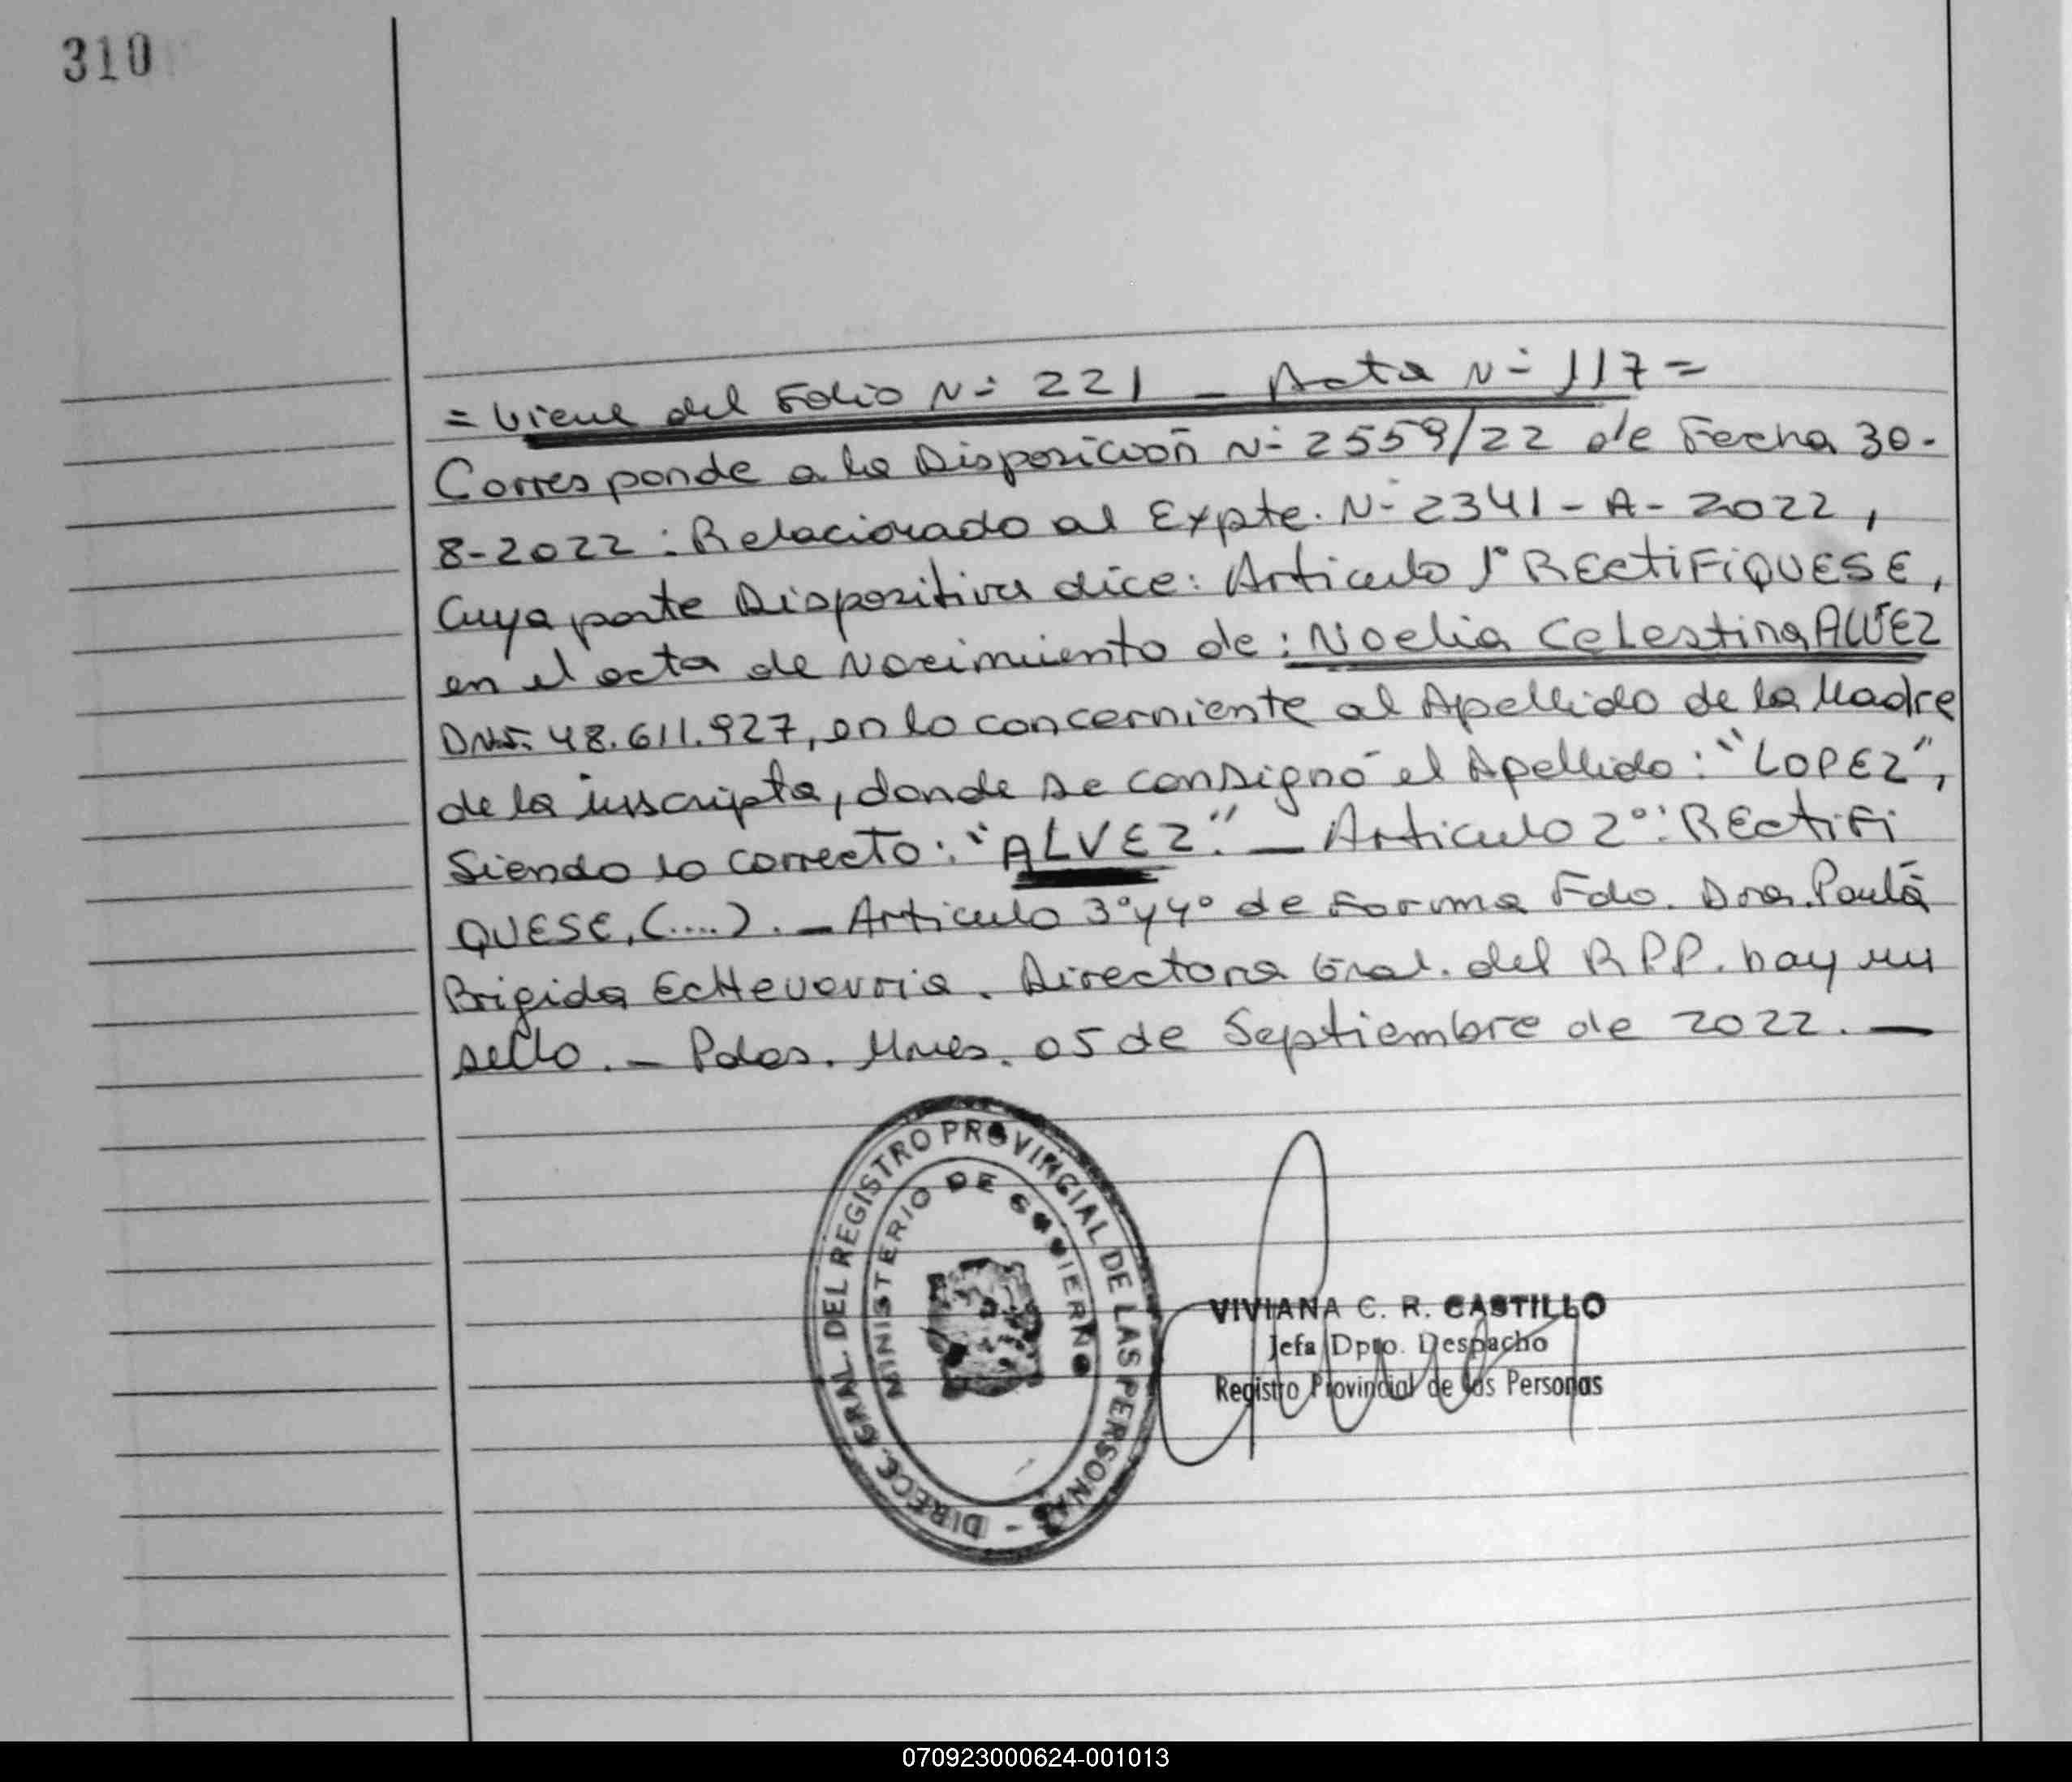 310
= Viene del Folio N= 221 _ Acta N= 117 =
Corresponde a la Disposición N= 2559/22 de Fecha 30-
8-2022 : Relacionado al Expte. N= 2341 - A - 2022 ,
Cuya parte Dispositiva dice: Articulo 1° RECtiFiQUESE,
en el acta de Nacimiento de: Noelia Celestina ALVEZ
DNI: 48.611.927, en lo concerniente al Apellido de la Madre
de la inscripta, donde se consignó el Apellido: "LOPEZ",
Siendo lo correcto: "ALVEZ". _ Articulo 2°: RECtiFi
QUESE, (....). _ Articulo 3° y 4° de Forma Fdo. Dra. Paula
Brigida EcHevarria. Directora Gral. del R.P.P. hay un
sello. _ Pdas. Mnes. 05 de Septiembre de 2022. _
DIRECC. GRAL. DEL REGISTRO PROVINCIAL DE LAS PERSONAS -
MINISTERIO DE GOBIERNO
VIVIANA C. R. CASTILLO
Jefa Dpto. Despacho
Registro Provincial de las Personas
070923000624-001013